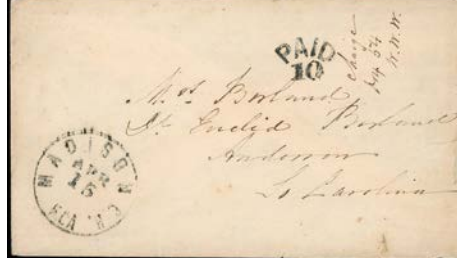 PAID
10
Charge
Box 54
Mrs Borland
Euclid Borland
Anderson
So Carolina
MADISON
APR
15
C.H. FLA